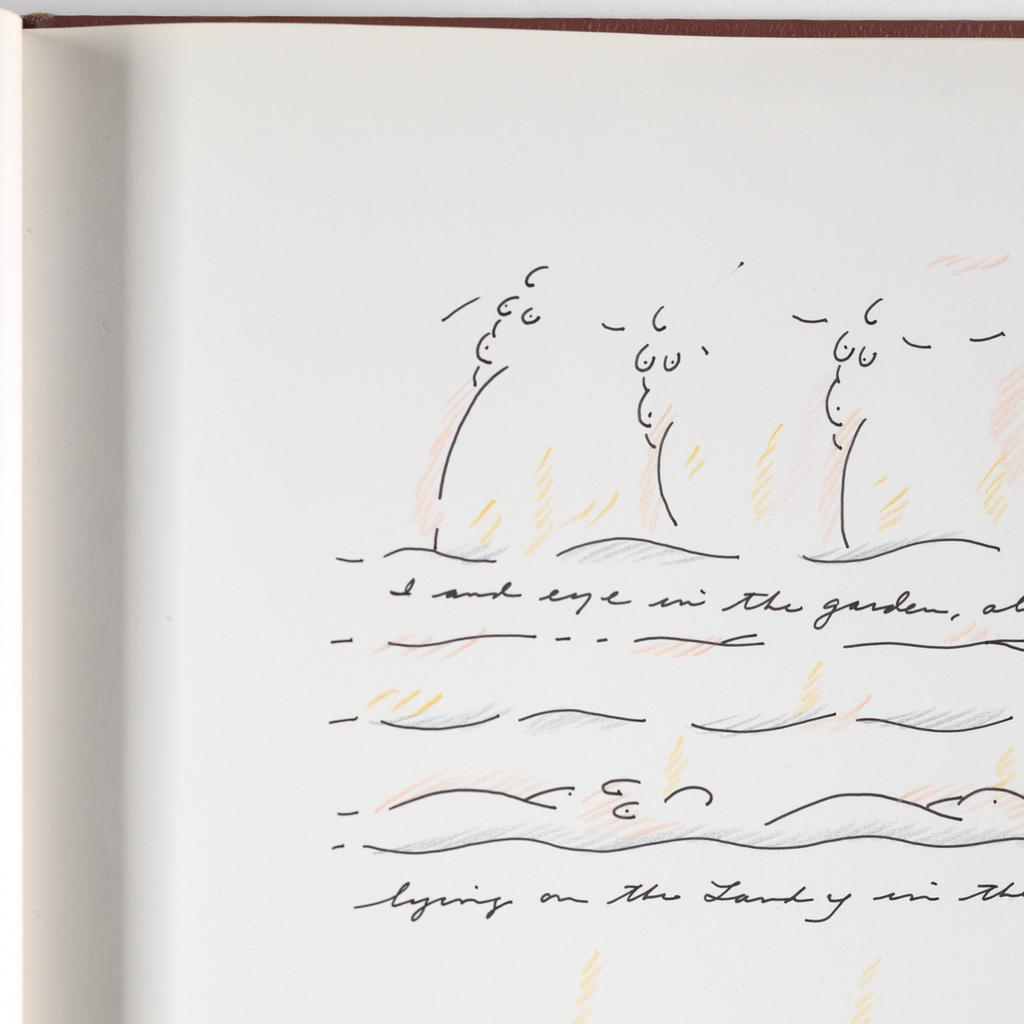 I and eye in the garden, al
lying on the Land y in the